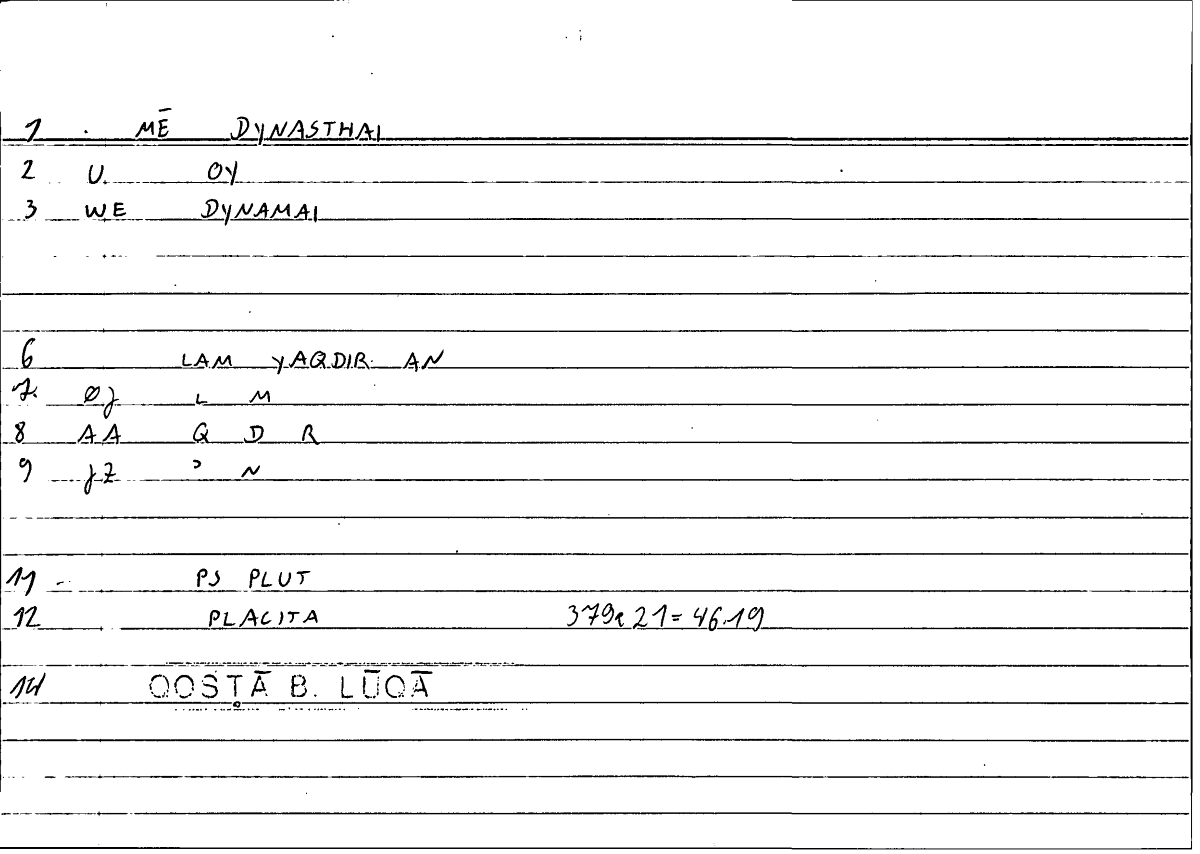 1 MĒ DYNASTHAI
2 U. OY
3 WE DYNAMAI
6 LAM YAQDIR AN
7. ØJ L M
8 AA Q D R
9 JZ ʾ N
11 PS PLUT
12 PLACITA 379a21=46.19
14 QOSṬĀ B. LŪQĀ